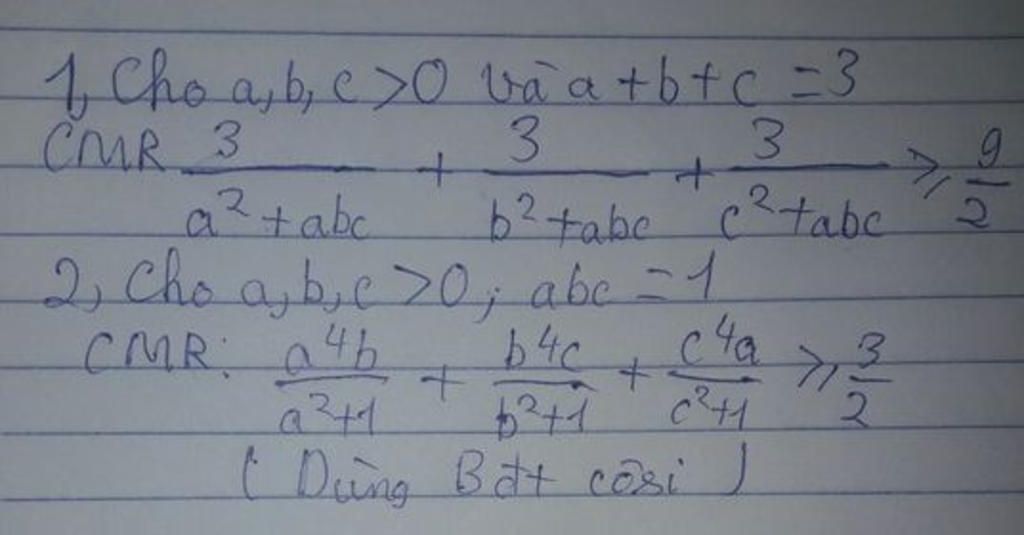 1, Cho a, b, c > 0 và a + b + c = 3
CMR 3/(a² + abc) + 3/(b² + abc) + 3/(c² + abc) ≥ 9/2
2, Cho a, b, c > 0; abc = 1
CMR: a⁴b/(a²+1) + b⁴c/(b²+1) + c⁴a/(c²+1) ≥ 3/2
( Dùng Bđt côsi )